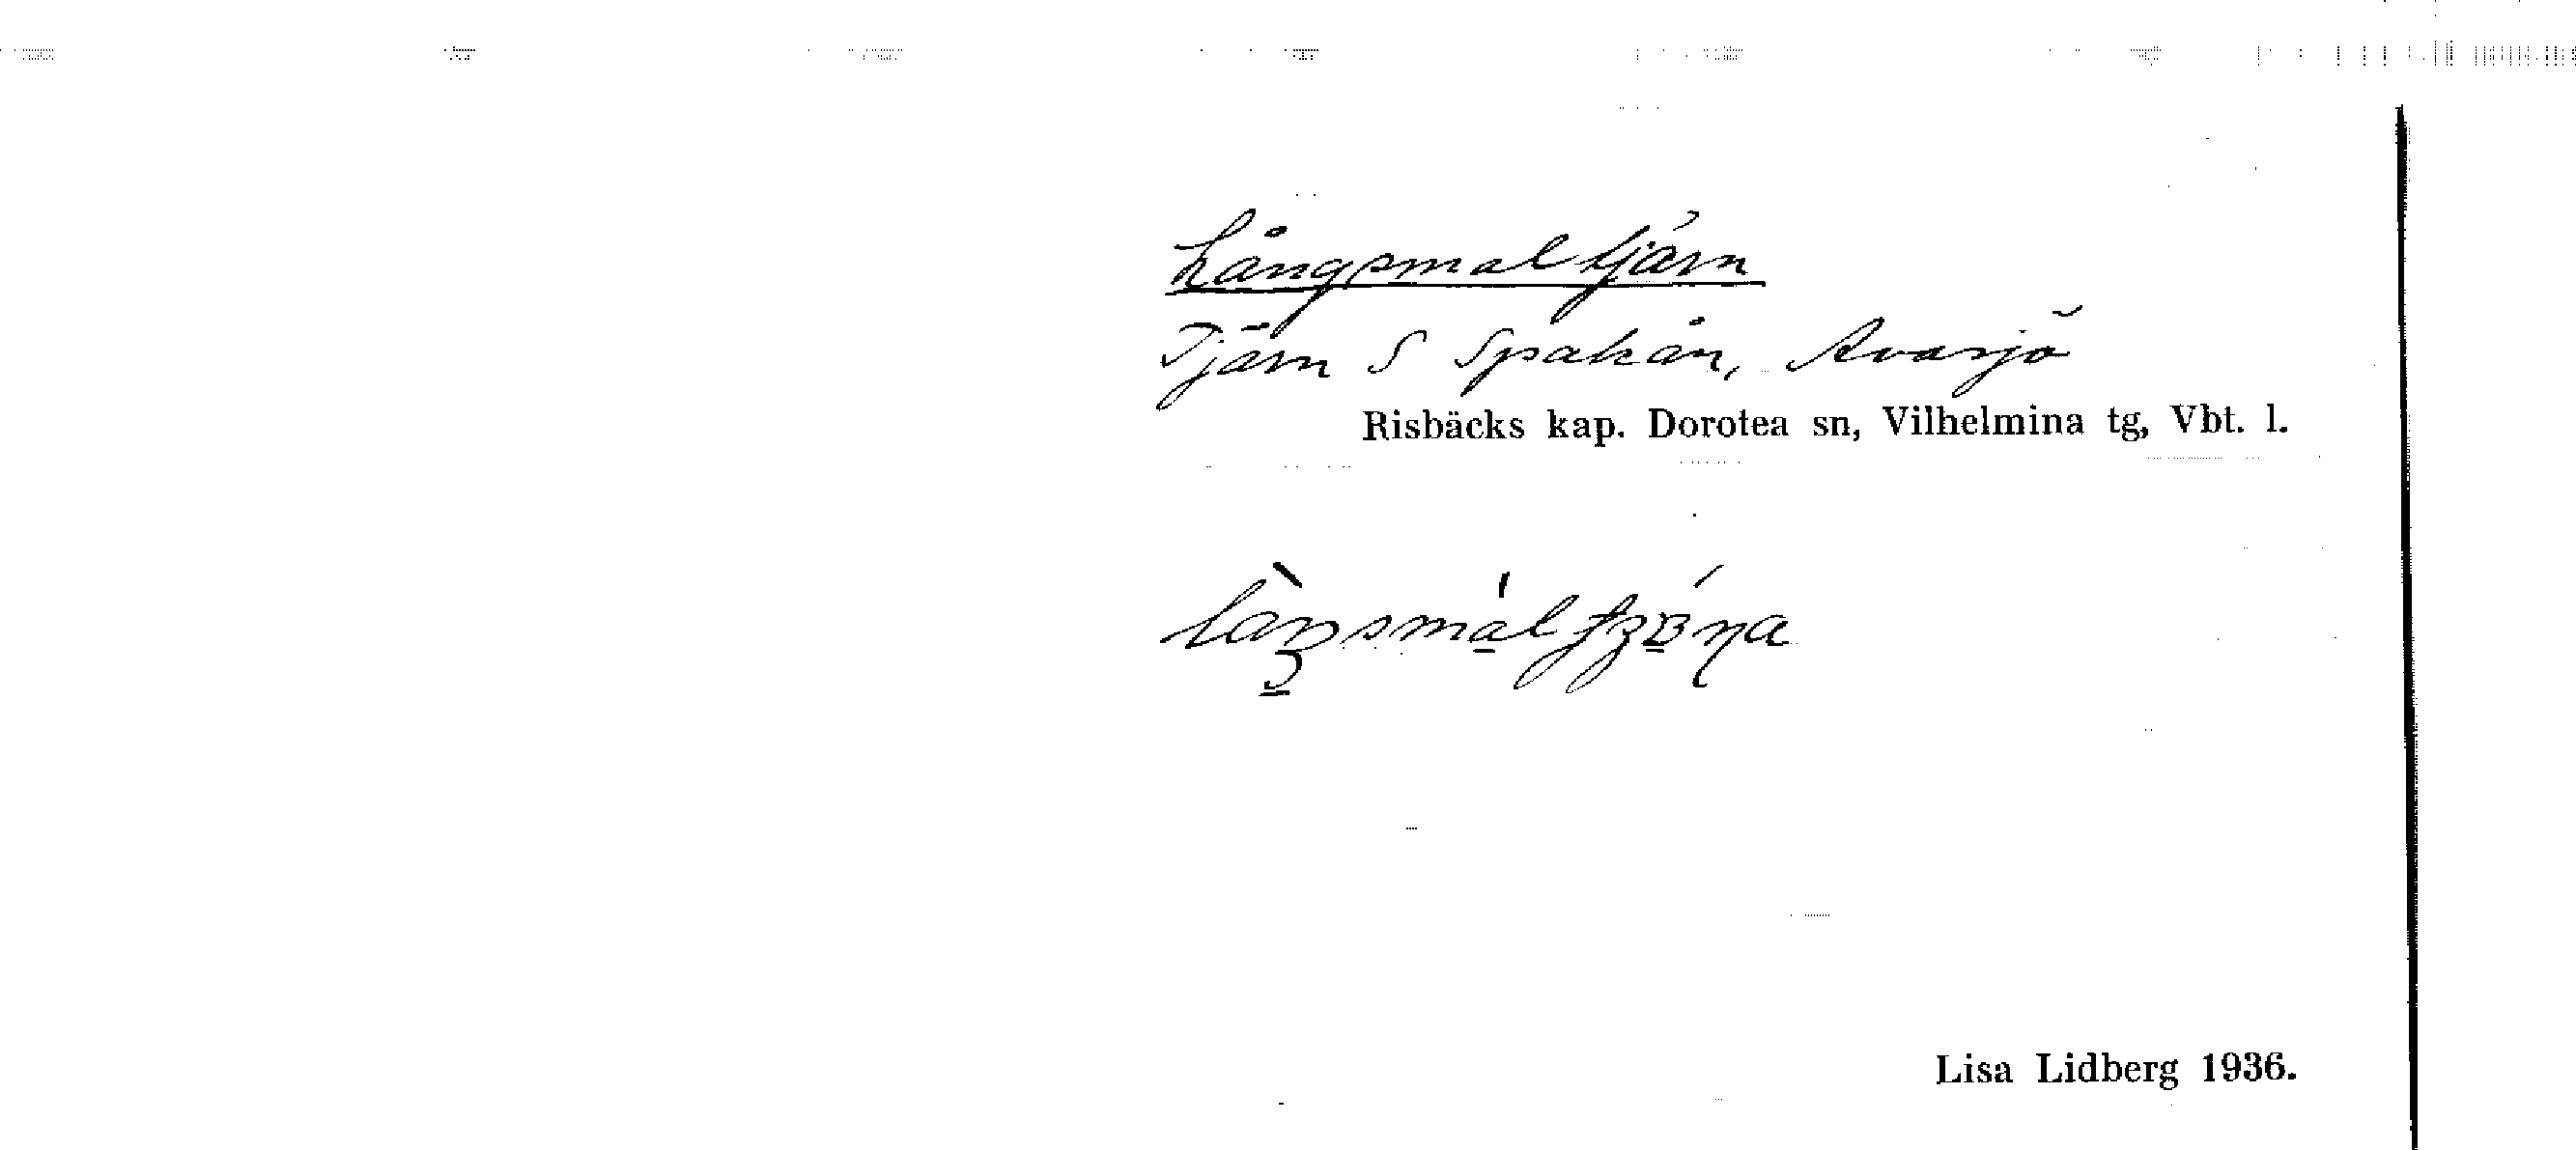 Långsmaltjärn
Tjärn S Spakån, Avasjö
Risbäcks kap. Dorotea sn, Vilhelmina tg, Vbt. l.
Lisa Lidberg 1936.